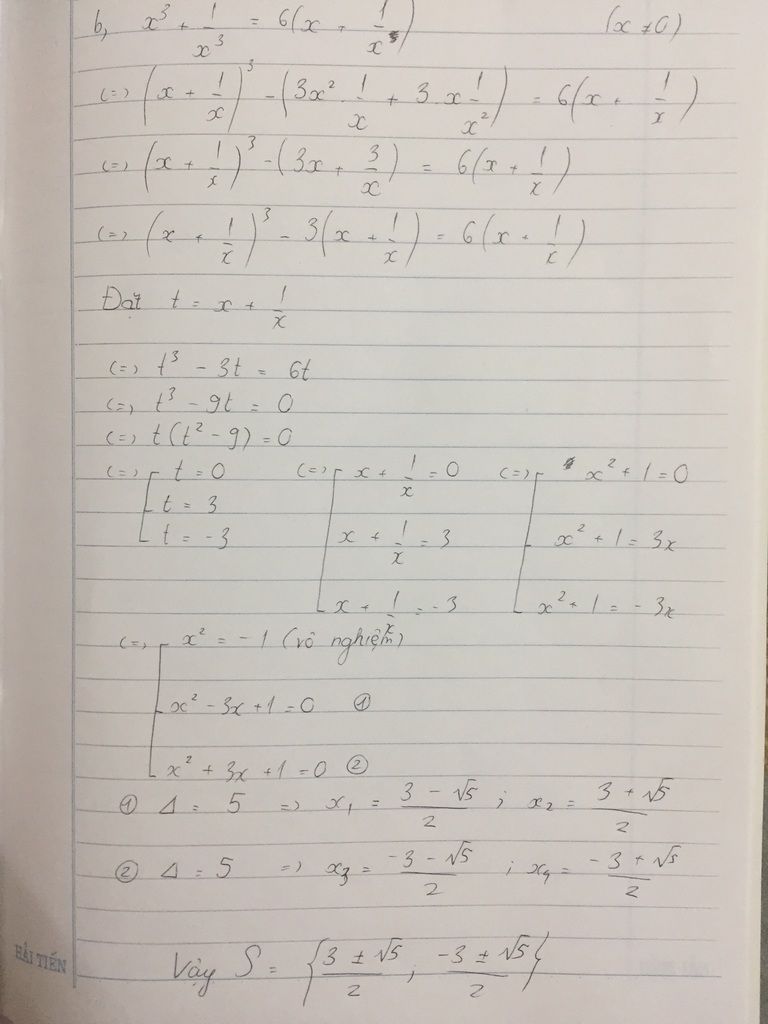 b, x³ + 1/x³ = 6(x + 1/x) (x ≠ 0)
(=) (x + 1/x)³ - (3x² . 1/x + 3 . x 1/x²) = 6(x + 1/x)
(=) (x + 1/x)³ - (3x + 3/x) = 6(x + 1/x)
(=) (x + 1/x)³ - 3(x + 1/x) = 6(x + 1/x)
Đặt t = x + 1/x
(=) t³ - 3t = 6t
(=) t³ - 9t = 0
(=) t(t² - 9) = 0
(=) [ t = 0 (=) [ x + 1/x = 0 (=) [ x² + 1 = 0
t = 3 x + 1/x = 3 x² + 1 = 3x
t = -3 x + 1/x = -3 x² + 1 = -3x
(=) [ x² = -1 (vô nghiệm)
x² - 3x + 1 = 0 ①
x² + 3x + 1 = 0 ②
① Δ = 5 => x₁ = (3 - √5)/2 ; x₂ = (3 + √5)/2
② Δ = 5 => x₃ = (-3 - √5)/2 ; x₄ = (-3 + √5)/2
Vậy S = {(3 ± √5)/2 ; (-3 ± √5)/2}
HẢI TIẾN